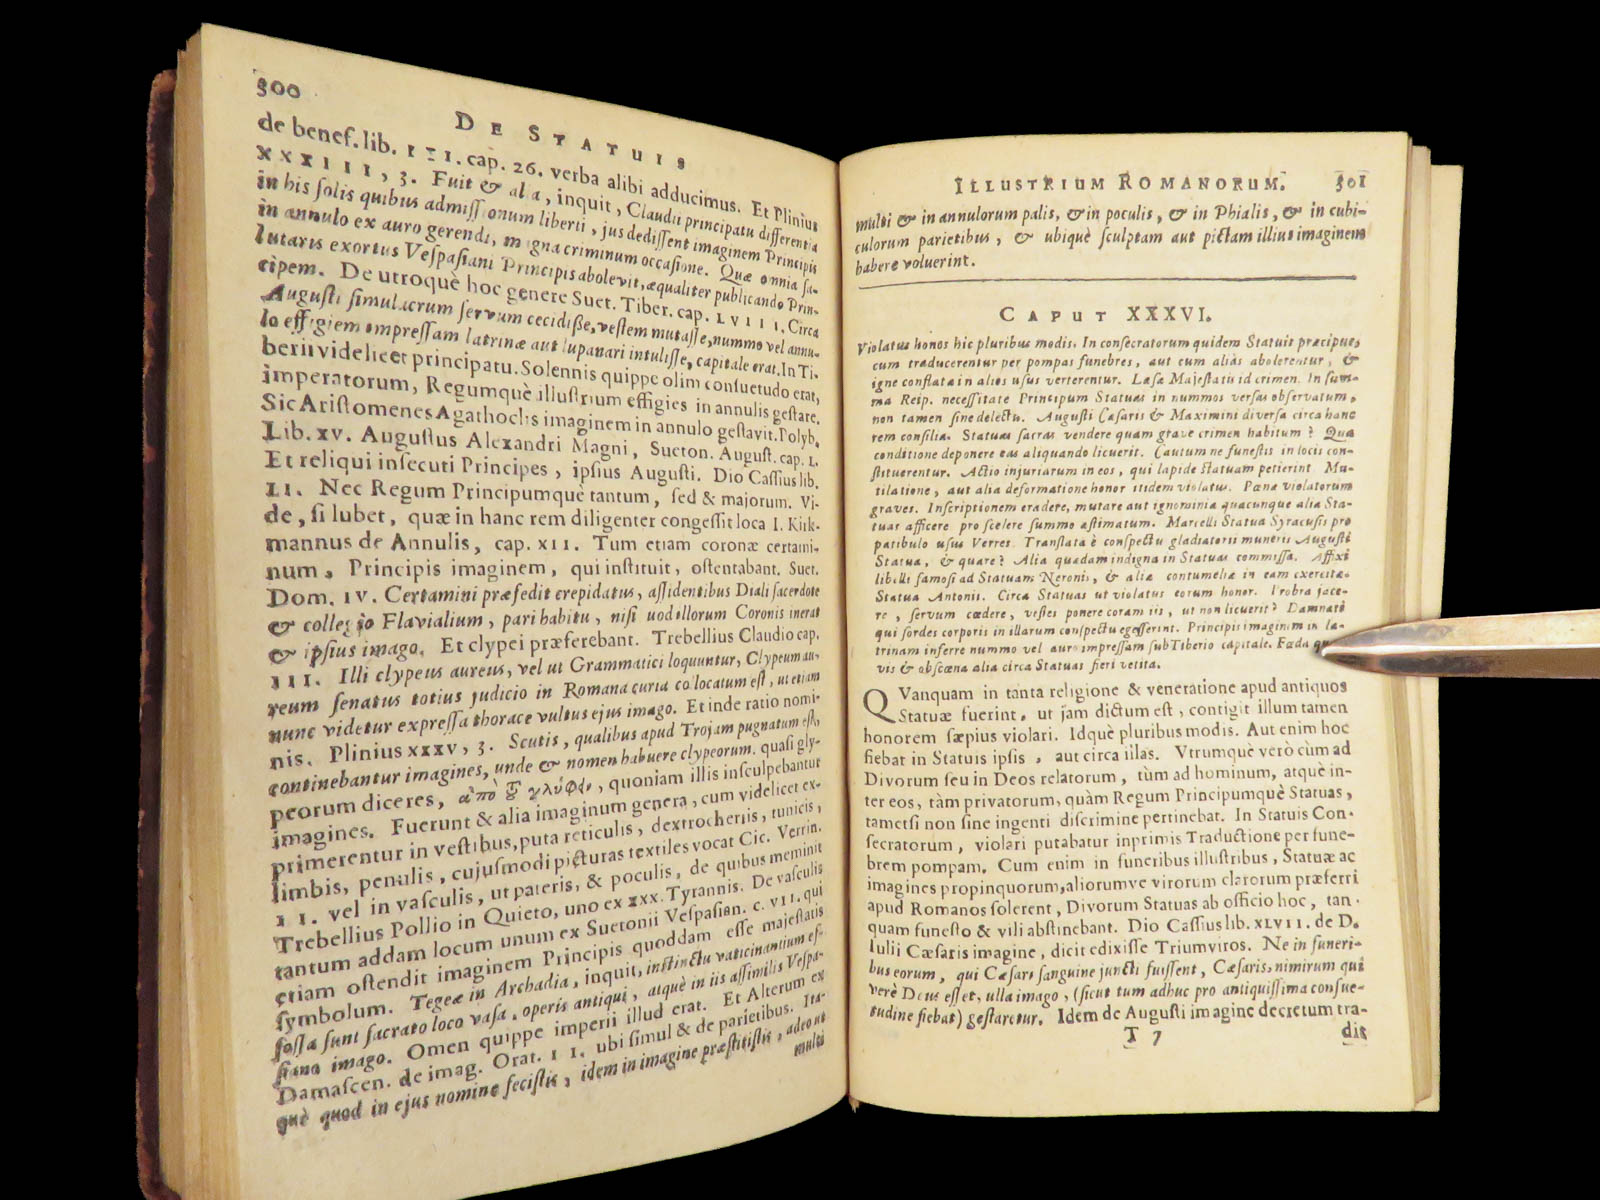 300
DE STATUIS
de benef. lib. III. cap. 26. verba alibi adducimus. Et Plinius
XXXIII, 3. Fuit & alia, inquit, Claudii principatu differentia
in his ſolis quibus admiſſionum liberti, jus dediſſent imaginem Principis
in annulo ex auro gerendi, magna criminum occaſione. Quæ omnia ſa-
lutaris exortus Veſpaſiani Principis abolevit, æqualiter publicando Prin-
cipem. De utroquè hoc genere Suet. Tiber. cap. LVIII. Circa
Auguſti ſimulacrum ſervum cecidiſſe, veſtem mutaſſe, nummo vel annu-
lo effigiem impreſſam latrinæ aut lupanari intuliſſe, capitale erat. In Ti-
berii videlicet principatu. Solennis quippe olim conſuetudo erat,
imperatorum, Regumquè illuſtrium effigies in annulis geſtare.
Sic Ariſtomenes Agathoclis imaginem in annulo geſtavit. Polyb.
Lib. XV. Auguſtus Alexandri Magni, Sueton. Auguſt. cap. L.
Et reliqui inſecuti Principes, ipſius Auguſti. Dio Caſſius lib.
LI. Nec Regum Principumquè tantum, ſed & majorum. Vi-
de, ſi lubet, quæ in hanc rem diligenter congeſſit loca I. Kirk-
mannus de Annulis, cap. XII. Tum etiam coronæ certami-
num, Principis imaginem, qui inſtituit, oſtentabant. Suet.
Dom. IV. Certamini præſedit crepidatus, aſſidentibus Diali ſacerdote
& collegio Flavialium, pari habitu, niſi quod illorum Coronis inerat
& ipſius imago. Et clypei præferebant. Trebellius Claudio cap.
III. Illi clypeus aureus, vel ut Grammatici loquuntur, Clypeum au-
reum ſenatus totius judicio in Romana curia collocatum eſt, ut etiam
nunc videtur expreſſa thorace vultus ejus imago. Et inde ratio nomi-
nis. Plinius XXXV, 3. Scutis, qualibus apud Trojam pugnatum eſt,
continebantur imagines, unde & nomen habuere clypeorum. quaſi gly-
peorum diceres, ἀπὸ τοῦ γλύφειν, quoniam illis inſculpebantur
imagines. Fuerunt & alia imaginum genera, cum videlicet ex-
primerentur in veſtibus, puta reticulis, dextrocheriis, tunicis,
limbis, penulis, cujuſmodi picturas textiles vocat Cic. Verrin.
II. vel in vaſculis, ut pateris, & poculis, de quibus meminit
Trebellius Pollio in Quieto, uno ex XXX. Tyrannis. De vaſculis
tantum addam locum unum ex Suetonii Veſpaſian. c. VII. qui
etiam oſtendit imaginem Principis quoddam eſſe majeſtatis
ſymbolum. Tegeæ in Archadia, inquit, inſtinctu vaticinantium ef-
foſſa ſunt ſacrato loco vaſa operis antiqui, atquè in iis aſſimilis Veſpa-
ſiano imago. Omen quippe imperii illud erat. Et Alterum ex
Damaſcen. de imag. Orat. II. ubi ſimul & de parietibus. Ita-
què quod in ejus nomine feciſtis, idem in imagine præſtitiſtis, adeo ut
multi
ILLUSTRIUM ROMANORUM. 301
multi & in annulorum palis, & in poculis, & in Phialis, & in cubi-
culorum parietibus, & ubiquè ſculptam aut pictam illius imaginem
habere voluerint.
CAPUT XXXVI.
Violatus honos hic pluribus modis. In conſecratorum quidem Statuis præcipue,
cum traducerentur per pompas funebres, aut cum aliàs abolerentur, &
igne conflata in alios uſus verterentur. Læſæ Majeſtatis id crimen. In ſum-
ma Reip. neceſſitate Principum Statuas in nummos verſas obſervatum,
non tamen ſine delectu. Auguſti Cæſaris & Maximini diverſa circa hanc
rem conſilia. Statuas ſacras vendere quam grave crimen habitum? Qua
conditione deponere eas aliquando licuerit. Cautum ne funeſtis in locis con-
ſtituerentur. Actio injuriarum in eos, qui lapide ſtatuam petierint. Mu-
tilatione, aut alia deformatione honor itidem violatus. Pœnæ violatorum
graves. Inſcriptionem eradere, mutare aut ignominia quacunque alia Sta-
tuas afficere pro ſcelere ſummo æſtimatum. Marcelli Statua Syracuſis pro
patibulo uſus Verres. Tranſlata è conſpectu gladiatorii muneris Auguſti
Statua, & quare? Alia quædam indigna in Statuas commiſſa. Affixi
libelli famoſi ad Statuam Neronis, & aliæ contumeliæ in eam exercitæ.
Statua Antonii. Circa Statuas ut violatus eorum honor. Probra jace-
re, ſervum cædere, veſtes ponere coram iis, ut non licuerit? Damnati
qui ſordes corporis in illarum conſpectu egeſſerint. Principis imaginem in la-
trinam inferre nummo vel auro impreſſam ſub Tiberio capitale. Fœda
vis & obſcœna alia circa Statuas fieri vetita.
QVanquam in tanta religione & veneratione apud antiquos
Statuæ fuerint, ut jam dictum eſt, contigit illum tamen
honorem ſæpius violari. Idquè pluribus modis. Aut enim hoc
fiebat in Statuis ipſis, aut circa illas. Vtrumquè verò cùm ad
Divorum ſeu in Deos relatorum, tùm ad hominum, atquè in-
ter eos, tàm privatorum, quàm Regum Principumquè Statuas,
tametſi non ſine ingenti diſcrimine pertinebat. In Statuis Con-
ſecratorum, violari putabatur inprimis Traductione per fune-
brem pompam. Cum enim in funeribus illuſtribus, Statuæ ac
imagines propinquorum, aliorumve virorum clarorum præferri
apud Romanos ſolerent, Divorum Statuas ab officio hoc, tan-
quam funeſto & vili abſtinebant. Dio Caſſius lib. XLVII. de D.
Iulii Cæſaris imagine, dicit edixiſſe Triumviros. Ne in funeri-
bus eorum, qui Cæſari ſanguine juncti fuiſſent, Cæſaris, nimirum qui
verè Deus eſſet, ulla imago, (ſicut tum adhuc pro antiquiſſima conſue-
tudine fiebat) geſtaretur. Idem de Auguſti imagine decretum tra-
T 7 dit